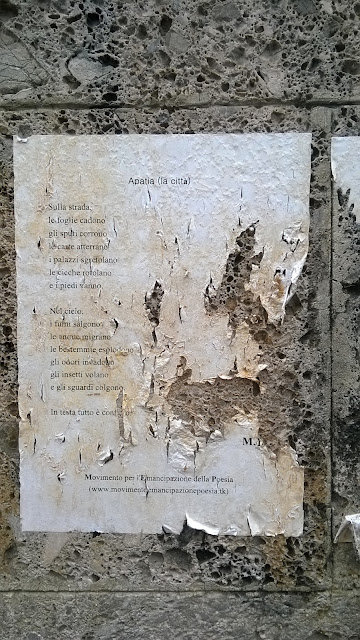 Apatia (la città)
Sulla strada,
le foglie cadono
gli sputi corrono
le carte atterrano
i palazzi sgretolano
le cicche rotolano
e i piedi vanno.
Nel cielo,
i fumi salgono
le anime migrano
le bestemmie esplodono
gli odori invadono
gli insetti volano
e gli sguardi colgono.
In testa tutto è
M.
Movimento per l'Emancipazione della Poesia
(www.movimentoemancipazionepoesia.tk)